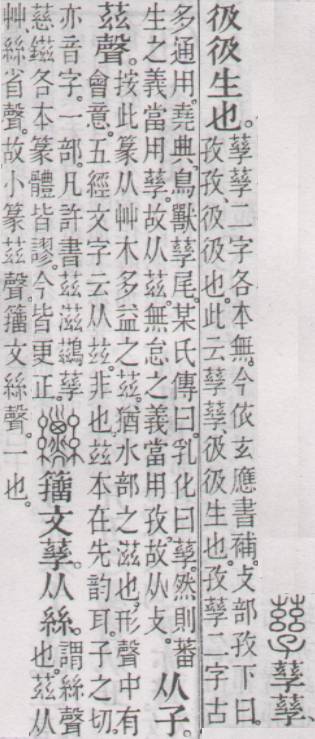 孳孳孳、
彶彶生也。
孳孳二字各本無。今依玄應書補。攴部孜下曰。
孜孜、彶彶也。此云孳孳、彶彶生也。孜孳二字古
多通用。堯典。鳥獸孳尾。某氏傳曰。乳化曰孳。然則蕃
生之義當用孳。故从茲。無怠之義當用孜。故从攴。
从子。
茲聲。
按此篆从艸木多益之茲。猶水部之滋也。形聲中有
會意。五經文字云从玆。非也。玆本在先韵耳。子之切。
亦音字。一部。凡許書茲滋鷀孳
慈鎡各本篆體皆謬。今皆更正。
籒文孳。从絲。
謂絲聲
也。茲从
艸絲省聲。故小篆茲聲。籒文絲聲。一也。